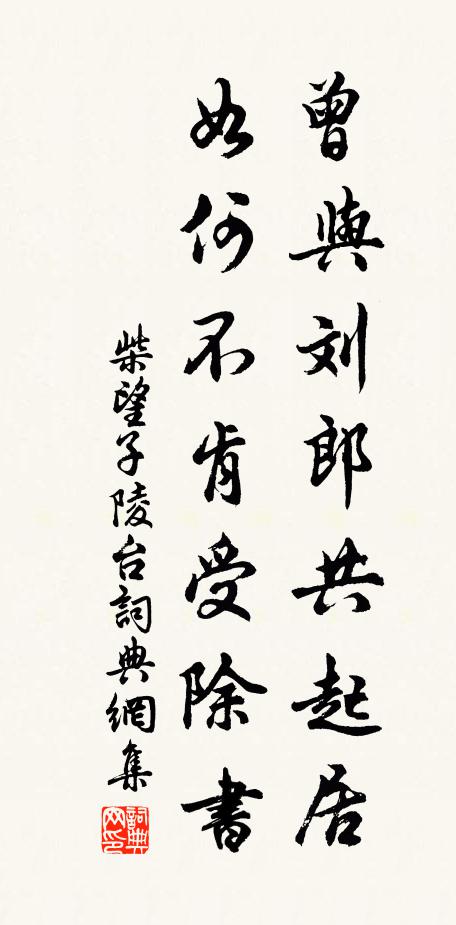 曾與刘郎共起居
如何不肯受除書
柴望子陵台詞典網集
詞典网印